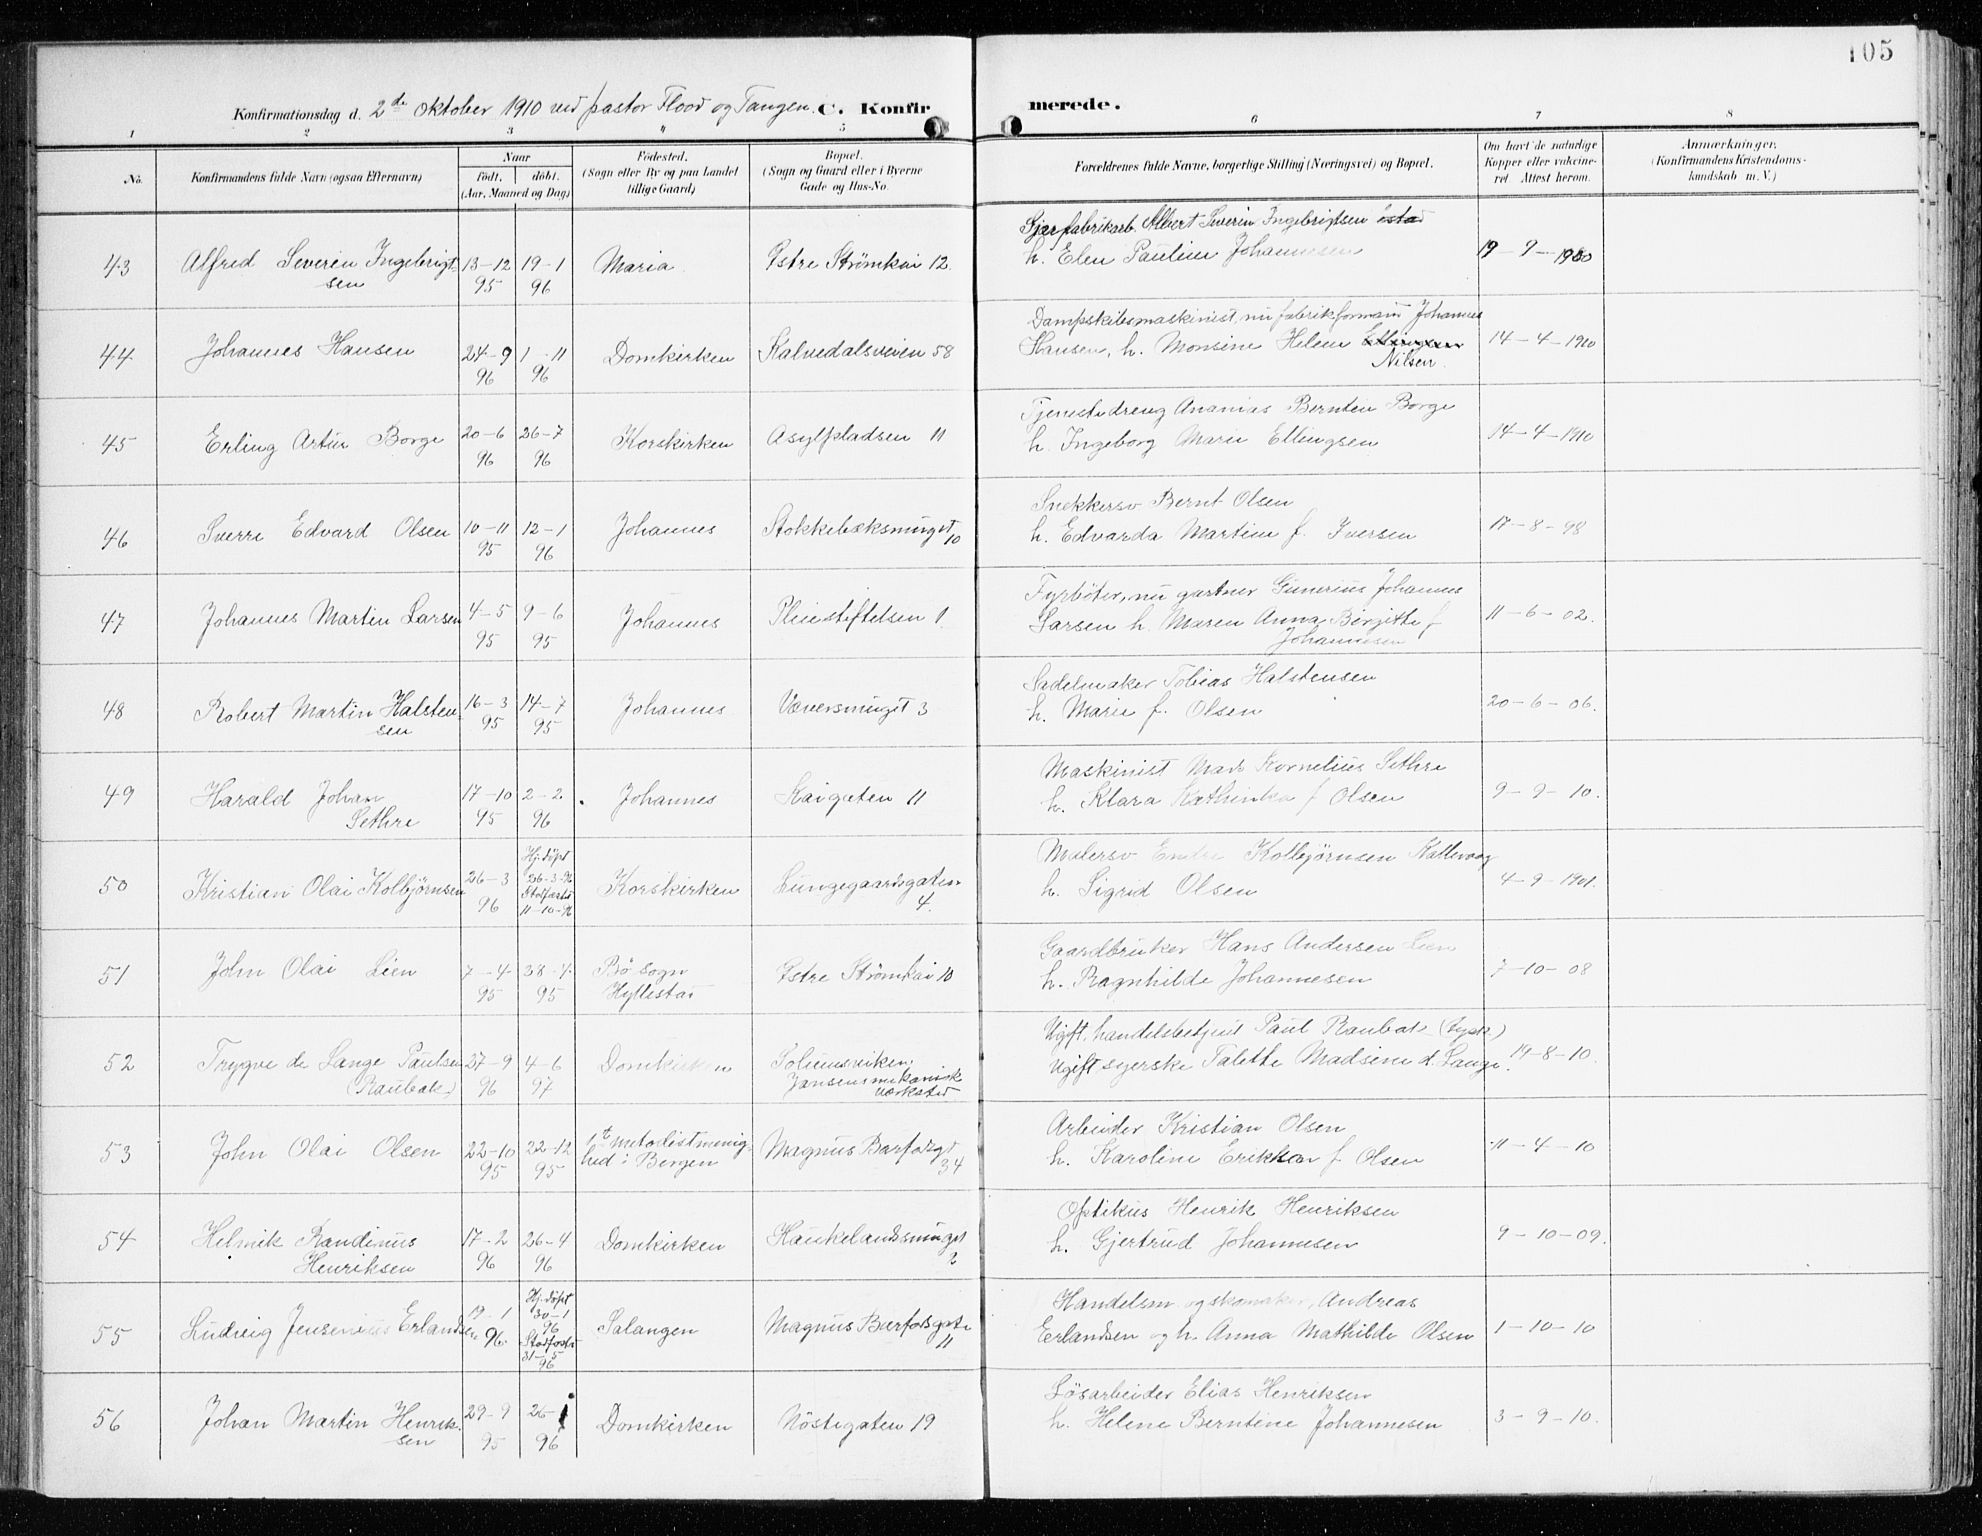 105
Konfirmationsdag d. 2de Oktober 1910 ved pastor Flood og Tangen. C. Konfirmerede.
1 2 3 4 5 6 7 8
No. Konfirmandens fulde Navn (ogsaa Efternavn) Naar født. døbt. (Aar, Maaned og Dag) Fødested. (Sogn eller By og paa Landet tillige Gaard) Bopæl. (Sogn og Gaard eller i Byerne Gade og Hus-No. Forældrenes fulde Navne, borgerlige Stilling (Næringsvei) og Bopæl. Om havt de naturlige Kopper eller vakcineret. Attest herom. Anmærkninger, (Konfirmandens Kristendomskundskab m. V.)
43 Alfred Severin Ingebrigtsen 13-12 95 19-1 96 Maria Østre Strømkai 12
Gjærfabrikarb. Albert Severin Ingebrigtsen
h. Elen Pauline Johannesen 19-9-1900
44 Johannes Hansen 24-9 96 1-11 96 Domkirken Kalvedalsveien 58
Dampskibsmaskinist, nu fabrikformand Johannes
Hansen, h. Monsine Helene Ellingsen Nilsen 14-4-1910
45 Erling Artur Borge 20-6 96 26-7 96 Korskirken Asylpladsen 11
Tjenestedreng Ananias Berntin Borge
h. Ingeborg Marie Ellingsen 14-4-1910
46 Sverre Edvard Olsen 10-11 95 12-1 96 Johannes Stokkebæksmuget 10
Snekkersv Bernt Olsen
h. Edvarda Martine f. Iversen 17-8-98
47 Johannes Martin Larsen 4-5 95 9-6 95 Johannes Pleiestiftelsen 1
Fyrbøter, nu gartner Gunerius Johannes
Larsen h. Maren Anna Birgitte f
Johannesen 11-6-02.
48 Robert Martin Halstensen 16-3 95 14-7 95 Johannes Væversmuget 3
Sadelmaker Tobias Halstensen
h. Marie f. Olsen 20-6-06.
49 Harald Johan Sethre 17-10 95 2-2 96 Johannes Kaigaten 11
Maskinist Mads Kornelius Sethre
h. Klara Kathinka f Olsen 9-9-10.
50 Kristian Olai Kolbjørnsen 26-3 96 Hj.døpt 26-3-96 Stadfæstet 11-10-96 Korskirken Lungegaardsgaten 4.
Malersv Endre Kolbjørnsen Kattevaag
h. Sigrid Olsen 4-9-1901.
51 John Olai Lien 7-4 95 38-4 95 Bø sogn Hyllestad Østre Strømkai 10
Gaardbruker Hans Andersen Lien
h. Ragnhilde Johannesen 7-10-08
52 Trygve de Lange Paulsen (Raubak) 27-9 96 4-6 97 Domkirken Solheimsviken Jansens mekanisk værksted
Ugift. handelsbetjent Paul Raubak (tysk)
Ugift syerske Talette Madsine d. Lange. 19-8-10.
53 John Olai Olsen 22-10 95 22-12 95 1te metodistmenighed i Bergen Magnus Barfodsgt 34
Arbeider Kristian Olsen
h. Karoline Erikka f Olsen 11-4-10
54 Helmik Randinus Henriksen 17-2 96 26-4 96 Domkirken Haukelandsmuget 2
Optikus Henrik Henriksen
h. Gjertrud Johannesen 9-10-09.
55 Ludvig Jensenius Erlandsen 19-1 96. Hj.døpt 30-1 96 Stadfæstet 31-5 96 Salangen Magnus Barfodsgate 11
Handelsm. og skomaker, Andreas
Erlandsen og h. Anna Mathilde Olsen 1-10-10
56 Johan Martin Henriksen 29-9 95 26-1 96 Domkirken Nøstegaten 19
Løsarbeider Elias Henriksen
h. Helene Berntine Johannesen 3-9-10.